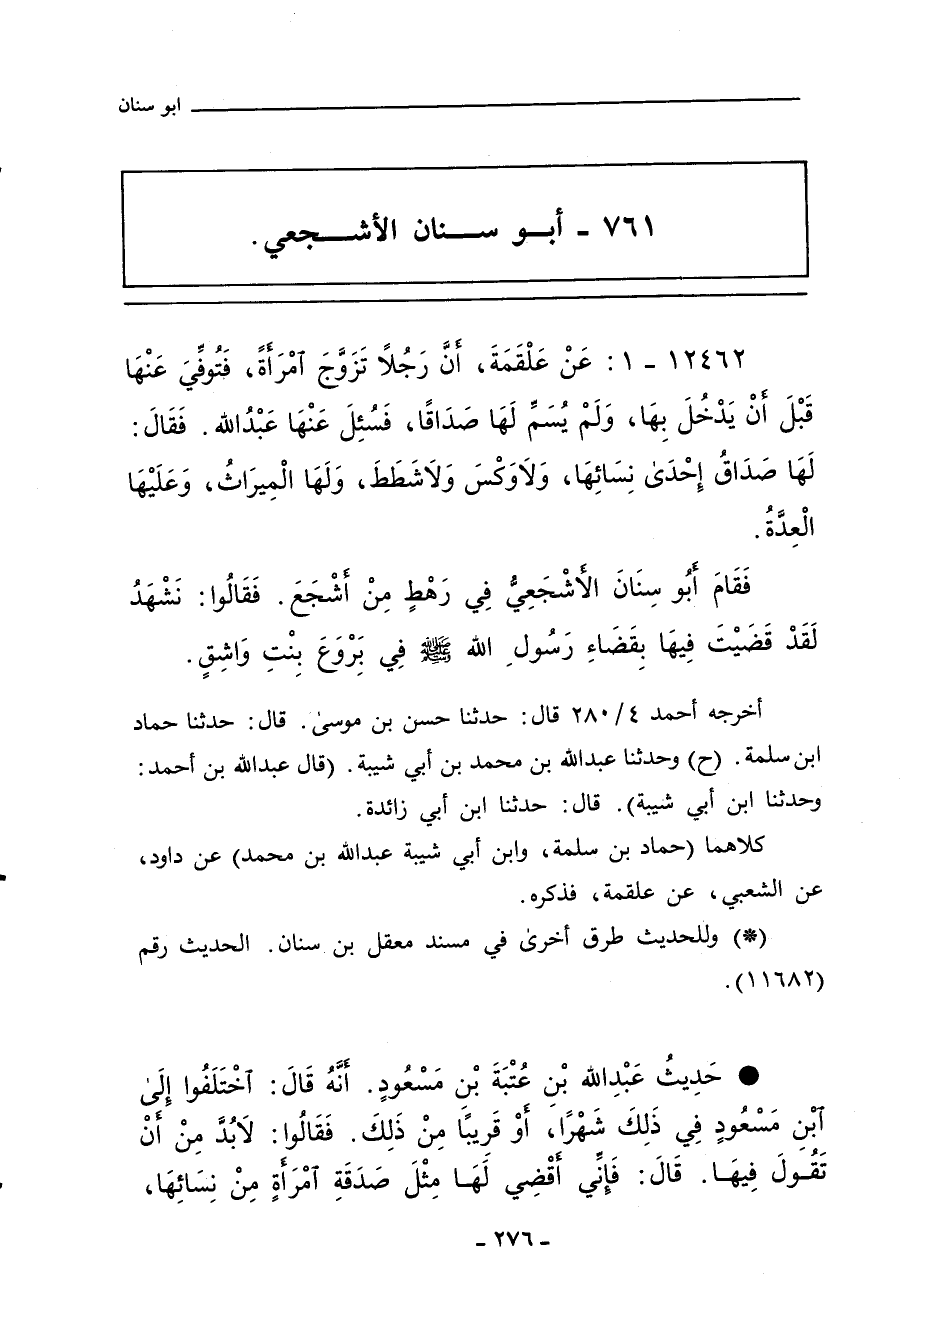 ابو سنان
٧٦١ - أبــو ســـنان الأشـــجعي.
١٢٤٦٢ - ١ : عَنْ عَلْقَمَةَ، أَنَّ رَجُلًا تَزَوَّجَ ٱمْرَأَةً، فَتُوفِّيَ عَنْهَا
قَبْلَ أَنْ يَدْخُلَ بِهَا، وَلَمْ يُسَمِّ لَهَا صَدَاقًا، فَسُئِلَ عَنْهَا عَبْدُالله. فَقَالَ:
لَهَا صَدَاقُ إِحْدَىٰ نِسَائِهَا، وَلَاوَكْسَ وَلَاشَطَطَ، وَلَهَا الْمِيرَاثُ، وَعَلَيْهَا
الْعِدَّةُ.
فَقَامَ أَبُو سِنَانَ الأَشْجَعِيُّ فِي رَهْطٍ مِنْ أَشْجَعَ. فَقَالُوا: نَشْهَدُ
لَقَدْ قَضَيْتَ فِيهَا بِقَضَاءِ رَسُولِ الله ﷺ فِي بَرْوَعَ بِنْتِ وَاشِقٍ.
أخرجه أحمد ٤/ ٢٨٠ قال: حدثنا حسن بن موسىٰ. قال: حدثنا حماد
ابن سلمة. (ح) وحدثنا عبدالله بن محمد بن أبي شيبة. (قال عبدالله بن أحمد:
وحدثنا ابن أبي شيبة). قال: حدثنا ابن أبي زائدة.
كلاهما (حماد بن سلمة، وابن أبي شيبة عبدالله بن محمد) عن داود،
عن الشعبي، عن علقمة، فذكره.
(*) وللحديث طرق أخرىٰ في مسند معقل بن سنان. الحديث رقم
(١١٦٨٢).
● حَدِيثُ عَبْدِالله بْنِ عُتْبَةَ بْنِ مَسْعُودٍ. أَنَّهُ قَالَ: ٱخْتَلَفُوا إِلَىٰ
ٱبْنِ مَسْعُودٍ فِي ذَلِكَ شَهْرًا، أَوْ قَرِيبًا مِنْ ذَلِكَ. فَقَالُوا: لَابُدَّ مِنْ أَنْ
تَقُـولَ فِيهَـا. قَالَ: فَإِنِّي أَقْضِي لَهَـا مِثْلَ صَدَقَةِ ٱمْرَأَةٍ مِنْ نِسَائِهَا،
- ٢٧٦ -